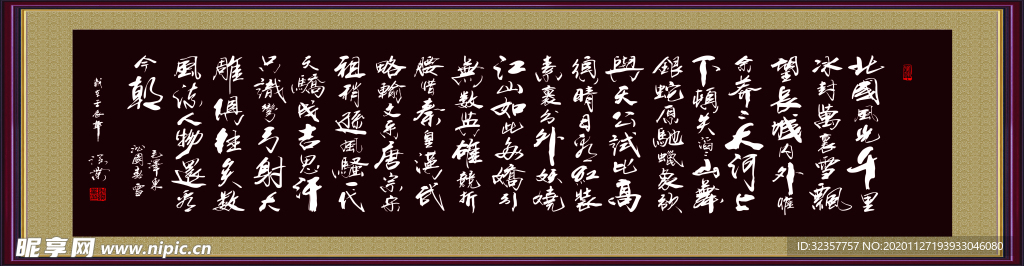 北國風光千里
冰封萬里雪飄
望長城内外惟
余莽莽大河上
下頓失滔滔山舞
銀蛇原馳蠟象欲
與天公試比高
須晴日看紅裝
素裹分外妖嬈
江山如此多嬌引
無數英雄競折
腰惜秦皇漢武
略輸文采唐宗宋
祖稍遜風騷一代
天驕成吉思汗
只識彎弓射大
雕俱往矣數
風流人物還看
今朝
毛澤東
沁園春雪
昵享网 www.nipic.cn
ID:32357757 NO:20201127193933046080